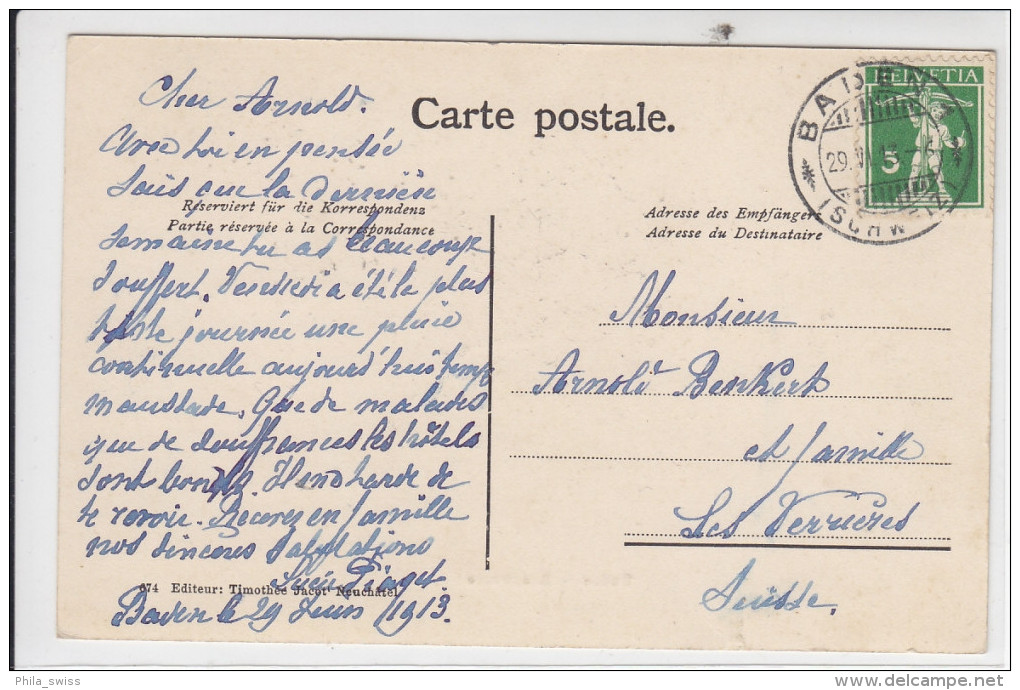 Cher Arnold.
Avec toi en pensée
Sais que la dernière
Réserviert für die Korrespondenz
Partie réservée à la Correspondance
Semaine tu as beaucoup
Souffert. Vendredi a été la plus
triste journée une pluie
continuelle aujourd'hui temps
maussade. Que de malades
que de souffrances les hôtels
sont bondés. Il me tarde de
te revoir. Recevez en famille
nos sincères salutations
Piaget.
674 Editeur: Timothée Jacot Neuchâtel
Baden le 29 Juin 1913.
Carte postale.
HELVETIA
5
BADEN 1
29.VI.13
(SCHWEIZ)
Adresse des Empfängers
Adresse du Destinataire
Monsieur
Arnold Benkert
et famille
Les Verrières
Suisse.
Phila_swiss
www.delcampe.net